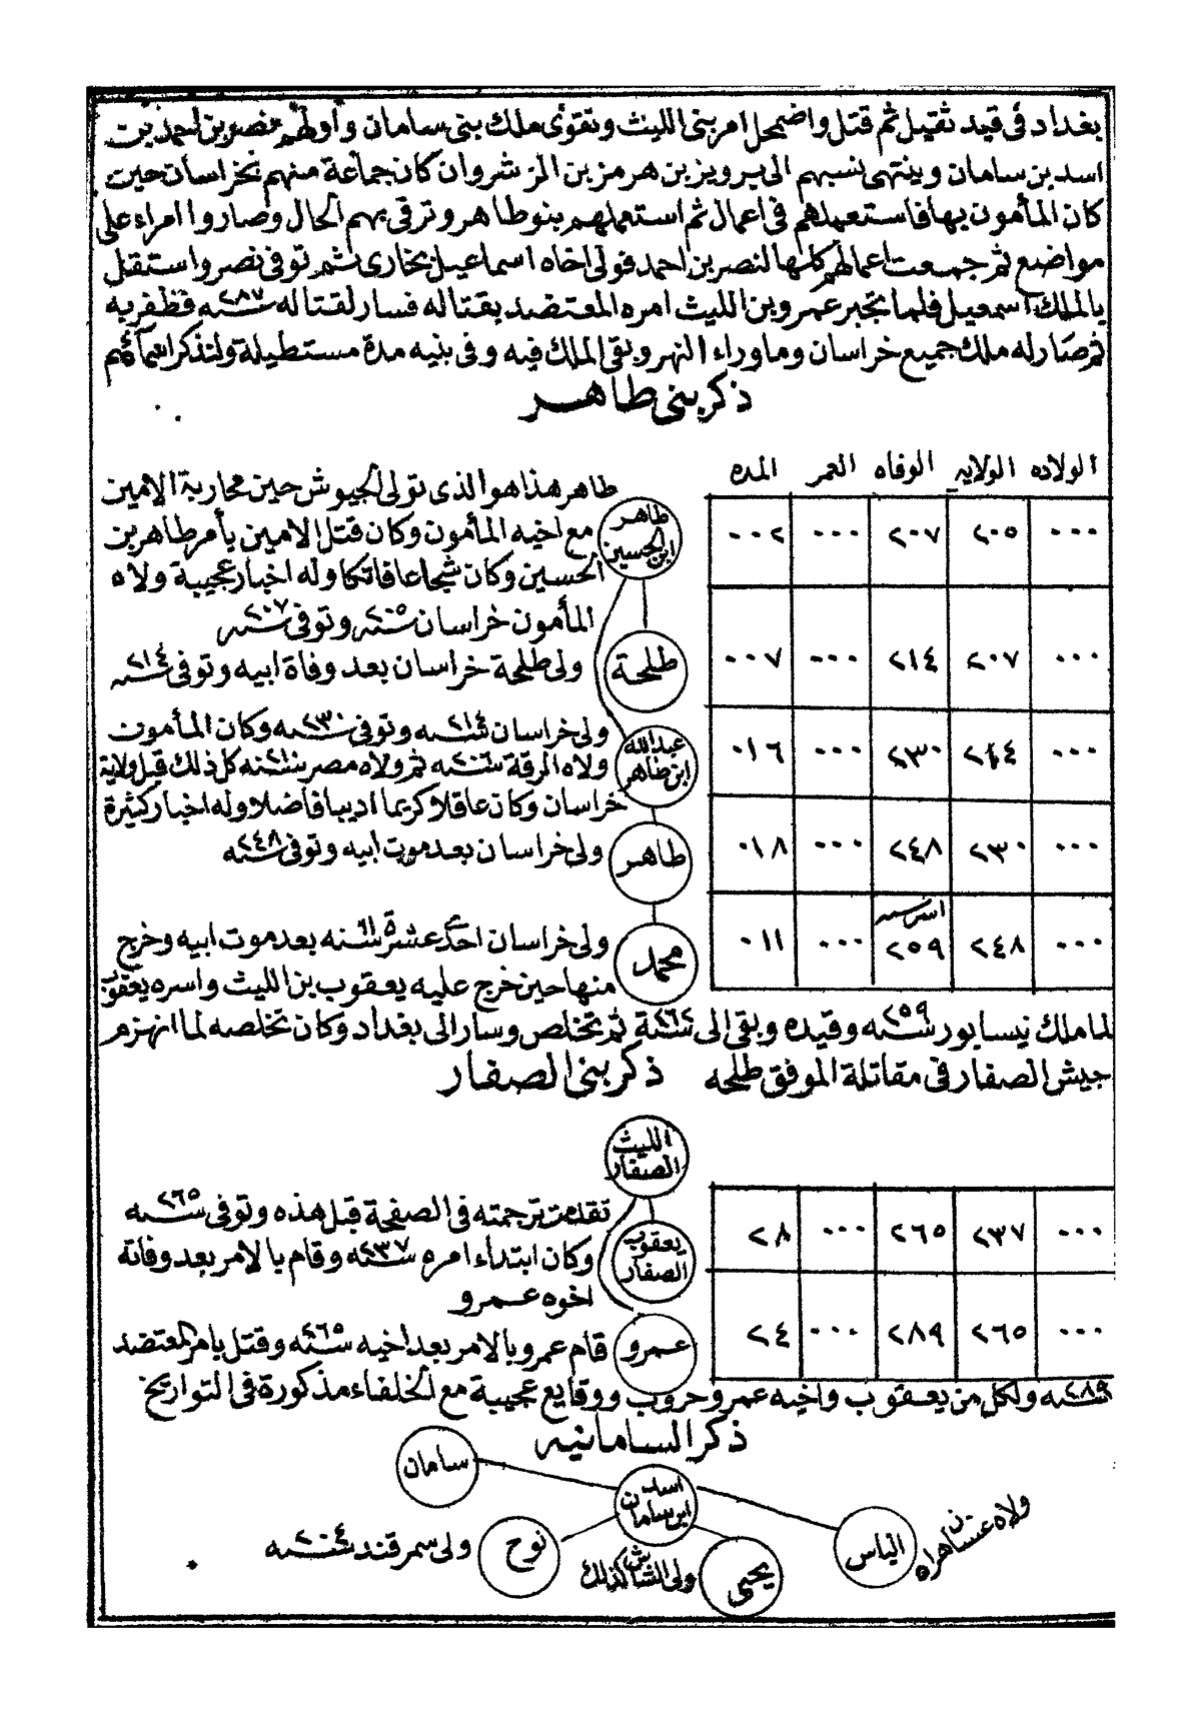 بغداد فى قيد ثقيل ثم قتل واضمحل امر بنى الليث وتقوى ملك بنى سامان واولهم نصر بن احمد بن
اسد بن سامان وينتهى نسبهم الى برويز بن هرمز بن انوشروان كان جماعة منهم بخراسان حين
كان المأمون بها فاستعملهم فى اعمال ثم استعملهم بنو طاهر وترقى بهم الحال وصاروا امراء على
مواضع ثم جمعت اعمالهم كلها لنصر بن احمد فولى اخاه اسماعيل بخارى ثم توفى نصر واستقل
بالملك اسمعيل فلما تجبر عمرو بن الليث امره المعتضد بقتاله فسار لقتاله سنة ٢٨٧ فظفر به
ثم صار له ملك جميع خراسان وماوراء النهر وبقى الملك فيه وفى بنيه مدة مستطيلة ولنذكر اسماءهم
ذكر بنى طاهر
الولاده الولايه الوفاه العمر المده
٠٠٠ ٢٠٥ ٢٠٧ ٠٠٠ ٠٠٢
طاهر ابن الحسين
طاهر هذا هو الذى تولى الجيوش حين محاربة الامين
مع اخيه المأمون وكان قتل الامين بأمر طاهر بن
الحسين وكان شجاعا فاتكا وله اخبار عجيبة ولاه
المأمون خراسان سنة ٢٠٥ وتوفى سنة ٢٠٧
٠٠٠ ٢٠٧ ٢١٤ ٠٠٠ ٠٠٧
طلحة
ولى طلحة خراسان بعد وفاة ابيه وتوفى سنة ٢١٤
٠٠٠ ٢١٤ ٢٣٠ ٠٠٠ ٠١٦
عبدالله ابن طاهر
ولى خراسان سنة ٢١٤ وتوفى سنة ٢٣٠ وكان المأمون
ولاه الرقة سنة ٢٠٦ ثم ولاه مصر سنة ٢١٠ كل ذلك قبل ولاية
خراسان وكان عاقلا كريما اديبا فاضلا وله اخبار كثيرة
٠٠٠ ٢٣٠ ٢٤٨ ٠٠٠ ٠١٨
طاهر
ولى خراسان بعد موت ابيه وتوفى سنة ٢٤٨
٠٠٠ ٢٤٨ اسر سنة ٢٥٩ ٠٠٠ ٠١١
محمد
ولى خراسان احدى عشرة سنة بعد موت ابيه وخرج
منها حين خرج عليه يعقوب بن الليث واسره يعقوب
لما ملك نيسابور سنة ٢٥٩ وقيده وبقى الى سنة ٢٦٢ ثم تخلص وسار الى بغداد وكان تخلصه لما انهزم
جيش الصفار فى مقاتلة الموفق طلحه
ذكر بنى الصفار
الليث الصفار
٠٠٠ ٢٣٧ ٢٦٥ ٠٠٠ ٢٨
يعقوب الصفار
تقدمت ترجمته فى الصفحة قبل هذه وتوفى سنة ٢٦٥
وكان ابتداء امره سنة ٢٣٧ وقام بالامر بعد وفاته
اخوه عمرو
٠٠٠ ٢٦٥ ٢٨٩ ٠٠٠ ٢٤
عمرو
قام عمرو بالامر بعد اخيه سنة ٢٦٥ وقتل بامر المعتضد
سنة ٢٨٩ ولكل من يعقوب واخيه عمرو حروب ووقايع عجيبة مع الخلفاء مذكورة فى التواريخ
ذكر السامانيه
سامان
اسد ابن سامان
الياس
ولاه غسان هراه
يحيى
ولى الشاش كذلك
نوح
ولى سمرقند سنة ٢٠٤